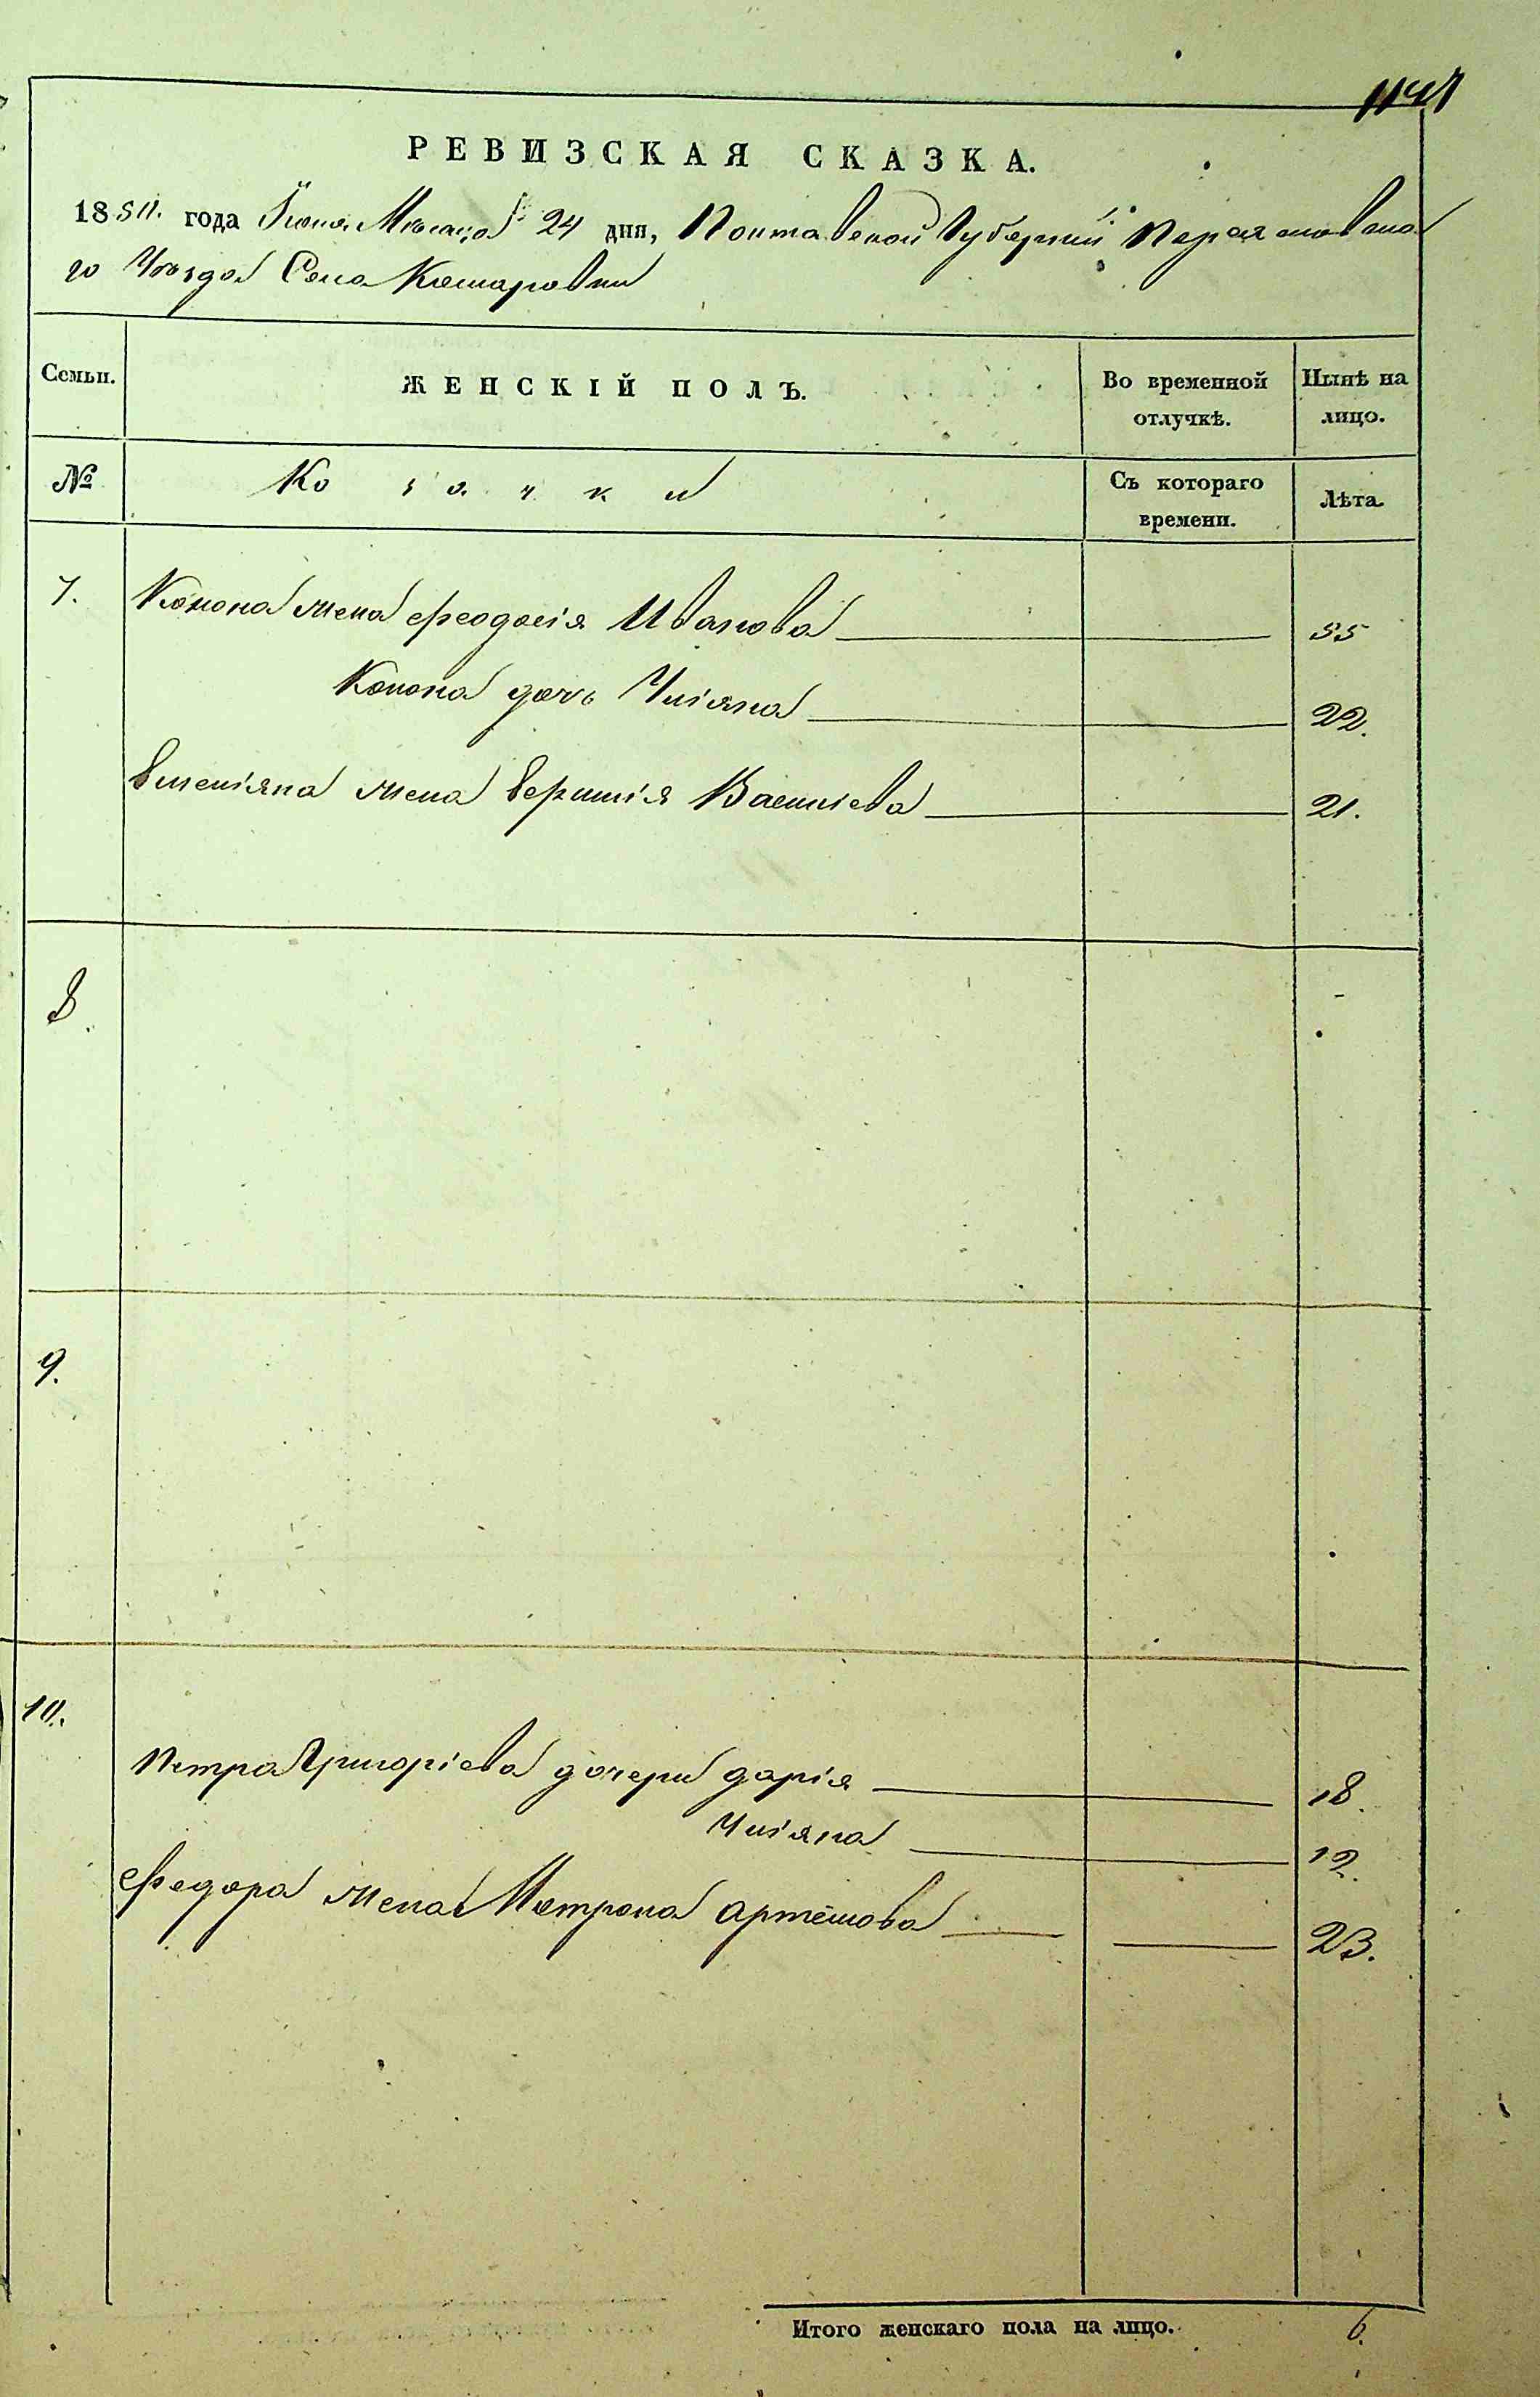 1141
РЕВИЗСКАЯ СКАЗКА.
1850. года Іюня Мѣсяца 24 дня, Полтавской Губерніи Переяславска
го Уѣзда Села Комаровки
Семьи. ЖЕНСКІЙ ПОЛЪ. Во временной отлучкѣ. Нынѣ на лицо.
№ Козачки Съ котораго времени. Лѣта.
7. Конона жена Феодосія Иванова 55
Конона дочь Уліяна 22.
Емеліяна жена Васильева 21.
8.
9.
10.
Петра Григоріева дочери Дарія 18.
Уліяна 12.
Федора жена Мотрона Артемова 23.
Итого женскаго пола на лицо. 6.